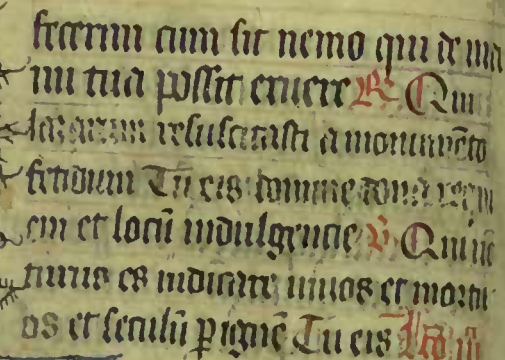 fecerim cum sit nemo qui de ma
nu tua possit eruere R Qui
lazarum resuscitasti a monumēto
fetidum Tu eis domine dona requi
em et locū indulgentie V Qui uē
turus es iudicare uiuos et mortu
os et seculū p ignē Tu eis